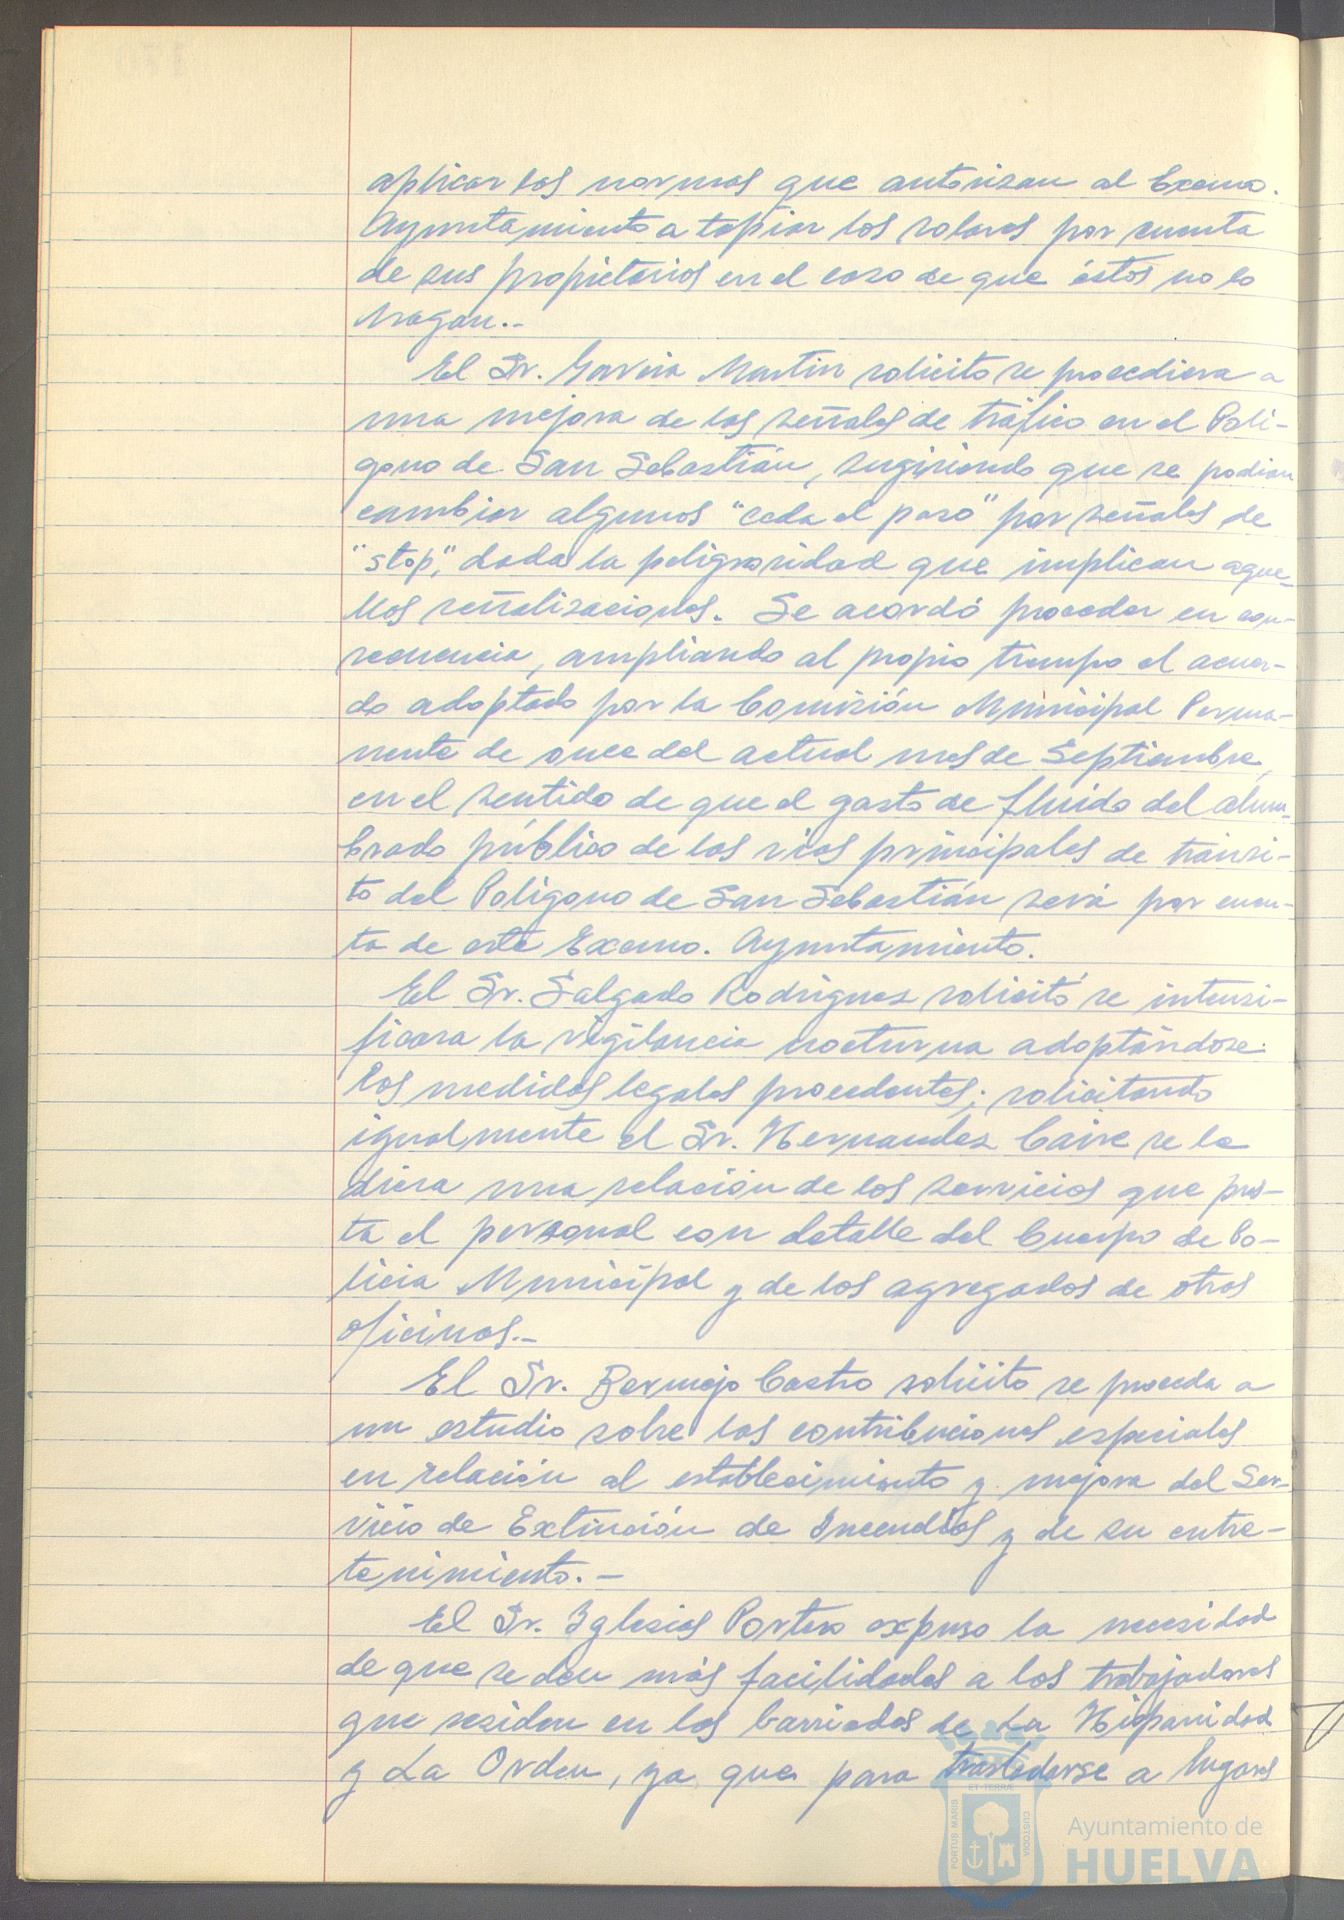 aplicar las normas que autorizan al Excmo.
Ayuntamiento a tapiar los solares por cuenta
de sus propietarios en el caso de que éstos no lo
hagan.-
El Sr. García Martín solicitó se procediera a
una mejora de las señales de tráfico en el Polí-
gono de San Sebastián, sugiriendo que se podían
cambiar algunos "ceda el paso" por señales de
"stop", dada la peligrosidad que implican aque-
llas señalizaciones. Se acordó proceder en con-
secuencia, ampliando al propio tiempo el acuer-
do adoptado por la Comisión Municipal Perma-
nente de once del actual mes de Septiembre,
en el sentido de que el gasto de fluido del alum-
brado público de las vías principales de tránsi-
to del Polígono de San Sebastián será por cuen-
ta de este Excmo. Ayuntamiento.
El Sr. Salgado Rodríguez solicitó se intensi-
ficara la vigilancia nocturna adoptándose
las medidas legales procedentes; solicitando
igualmente el Sr. Hernández Caire se le
diera una relación de los servicios que pres-
ta el personal con detalle del Cuerpo de Po-
licía Municipal y de los agregados de otras
oficinas.-
El Sr. Bermejo Castro solicitó se proceda a
un estudio sobre las contribuciones especiales
en relación al establecimiento y mejora del Ser-
vicio de Extinción de Incendios y de su entre-
tenimiento.-
El Sr. Iglesias Portero expuso la necesidad
de que se den más facilidades a los trabajadores
que residen en las barriadas de La Hispanidad
y La Orden, ya que para trasladarse a lugares
ET TERRAE
PORTUS MARIS
CUSTODIA
Ayuntamiento de
HUELVA